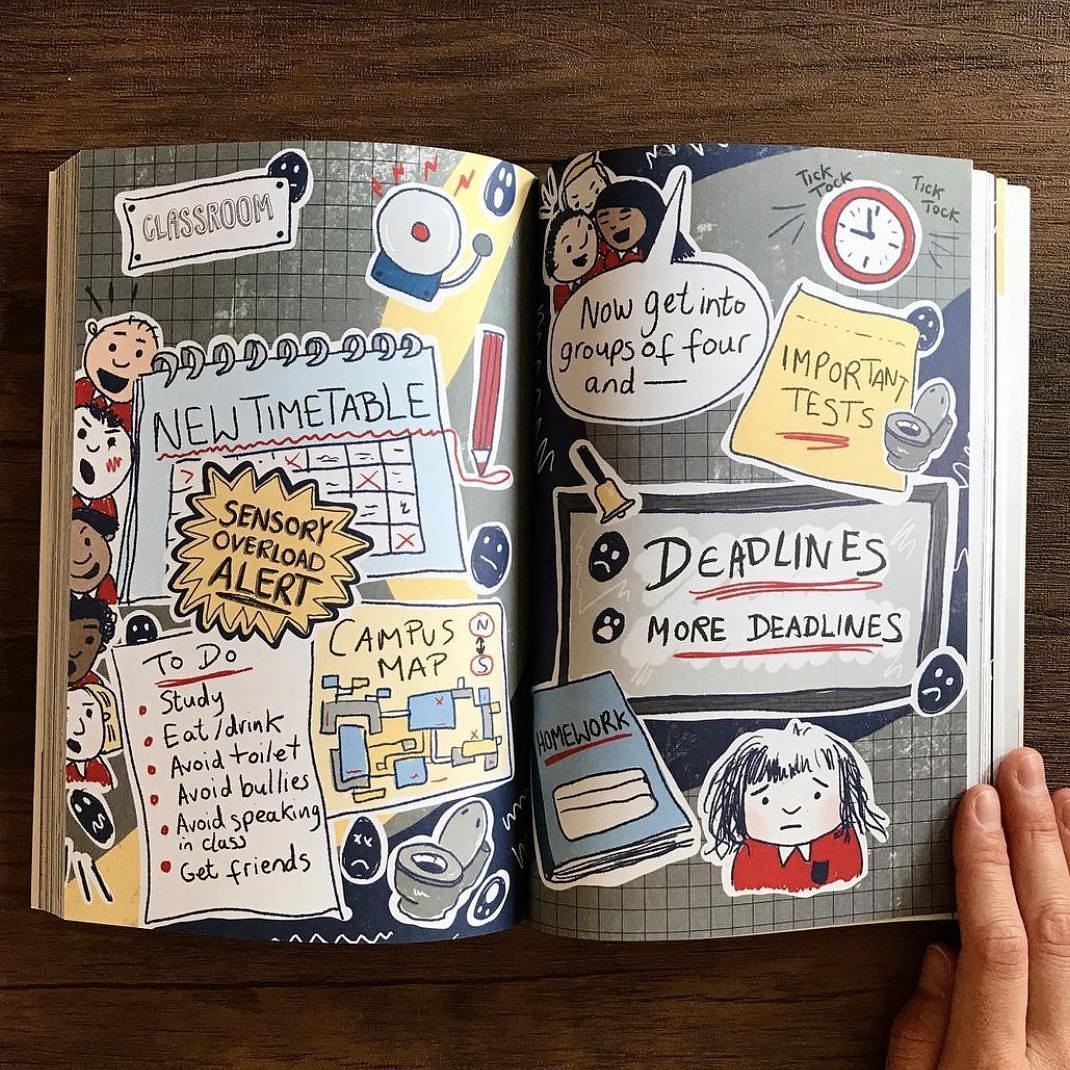 CLASSROOM
NEW TIMETABLE
SENSORY
OVERLOAD
ALERT
CAMPUS
MAP
N
S
To Do
Study
Eat/drink
Avoid toilet
Avoid bullies
Avoid speaking
in class
Get friends
Now get into
groups of four
and —
TICK
TOCK
TICK
TOCK
IMPORTANT
TESTS
DEADLINES
MORE DEADLINES
HOMEWORK